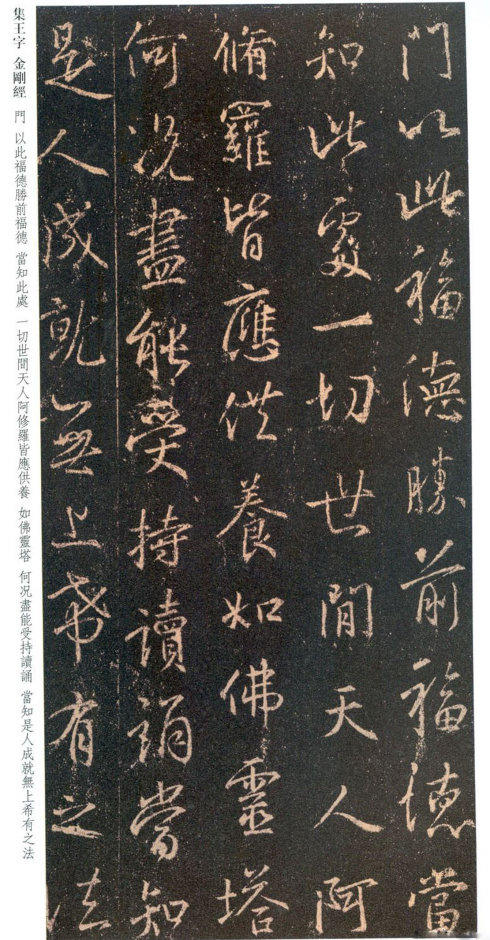 門以此福德勝前福德當
知此處一切世間天人阿
脩羅皆應供養如佛靈塔
何況盡能受持讀誦當知
是人成就無上希有之法
集王字 金剛經 門 以此福德勝前福德 當知此處 一切世間天人阿修羅皆應供養 如佛靈塔 何况盡能受持讀誦 當知是人成就無上希有之法